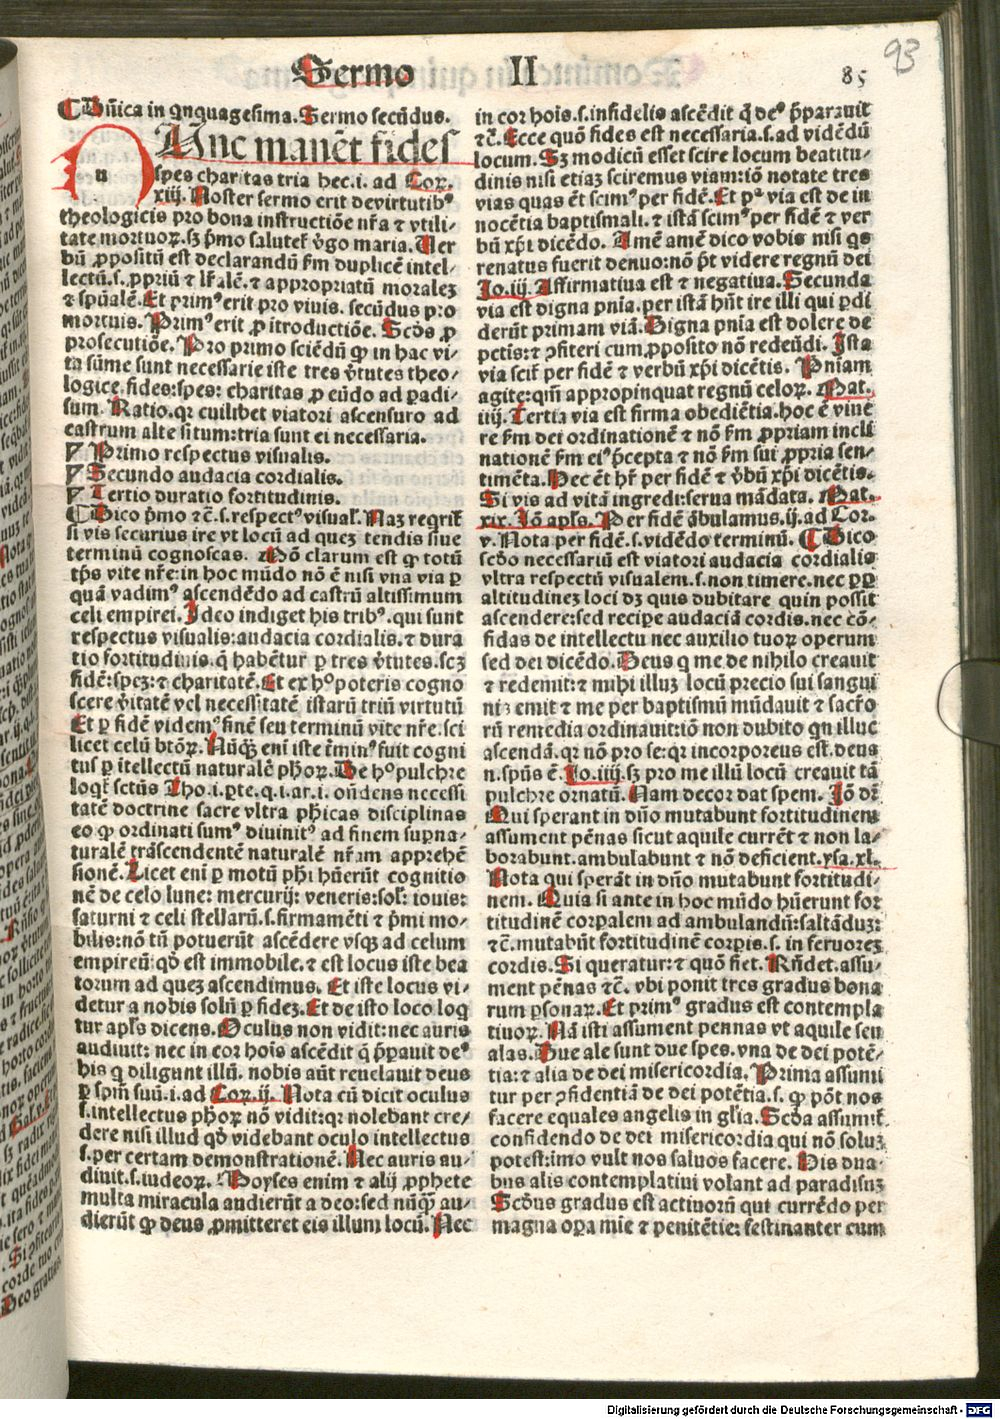 Sermo II 85
93
¶Dñica in qnquagesima. Sermo secũdus.
Unc manẽt fides
n
spes charitas tria hec. i. ad Coꝝ.
xiij. Noster sermo erit de virtutibꝰ
theologicis pro bona instructiõe nr̃a ⁊ vtili-
tate mortuoꝝ. sꝫ p̃mo saluteƚ v̾go maria. Uer
bũ ꝓpositũ est declarandũ ẜm duplicẽ intel-
lectũ. s. ꝓpriũ ⁊ lr̃alẽ. ⁊ appropriatũ moralez
⁊ spũalẽ. Et primꝰ erit pro viuis. secũdus pro
mortuis. Primꝰ erit ꝓ itroductiõe. Scđs ꝓ
prosecutiõe. Pro primo sciẽdũ ꝙ in hac vi-
ta sũme sunt necessarie iste tres v̾tutes theo-
logice. fides: spes: charitas ꝓ eũdo ad padi-
sum. Ratio. qr cuilibet viatori ascensuro ad
castrum alte situm: tria sunt ei necessaria.
Primo respectus visualis.
Secundo audacia cordialis.
Tertio duratio fortitudinis.
¶Dico p̃mo ⁊c̃. s. respectꝰ visuaƚ. Naz reqriƚ
si vis securius ire vt locũ ad quez tendis siue
terminũ cognoscas. Mõ clarum est ꝙ totũ
tp̃s vite nr̃e: in hoc mũdo nõ ẽ nisi vna via ꝑ
quã vadimꝰ ascendẽdo ad castrũ altissimum
celi empirei. Ideo indiget his tribꝰ. qui sunt
respectus visualis: audacia cordialis. ⁊ dura
tio fortitudinis. q̃ habẽtur ꝑ tres v̾tutes. scꝫ
fidẽ: spez: ⁊ charitatẽ. Et ex hᵒ poteris cogno
scere v̾itatẽ vel necessitatẽ istarũ triũ virtutũ
Et ꝑ fidẽ videmꝰ finẽ seu terminũ vite nr̃e. sci
licet celũ btõꝝ. Nũqꝫ enĩ iste t̾minꝰ fuit cogni
tus ꝑ itellectũ naturalẽ ph̃oꝝ. De hᵒ pulchre
logƚ sctũs Tho. i. ꝑte. q. i. ar. i. oñdens necessi
tatẽ doctrine sacre vltra ph̃icas disciplinas
eo ꝙ ordinati sumꝰ diuinitꝰ ad finem supna-
turalẽ trãscendentẽ naturalẽ nr̃am apprehẽ
sionẽ. Licet enĩ ꝑ motũ ph̃i hũerũt cognitio
nẽ de celo lune: mercurij: veneris: soƚ: iouis:
saturni ⁊ celi stellarũ. s. firmamẽti ⁊ p̃mi mo-
bilis: nõ tñ potuerũt ascẽdere vsqꝫ ad celum
empireũ: qđ est immobile. ⁊ est locus iste bea
torum ad quez ascendimus. Et iste locus vi-
detur a nobis solũ ꝑ fidez. Et de isto loco loq
tur apƚs dicens. Oculus non vidit: nec auris
audiuit: nec in cor hoĩs ascẽdit q̃ p̃parauit deꝰ
his q diligunt illũ. nobis aũt reuelauit deus
ꝑ spm̃ suũ. i. ad Coꝝ. ij. Nota cũ dicit oculus
ẜ. intellectus ph̃oꝝ nõ vidit: qr nolebant cre-
dere nisi illud qđ videbant oculo intellectus
s. per certam demonstrationẽ. Nec auris au-
diuit. s. iudeoꝝ. Moyses enim ⁊ alij ꝓphete
multa miracula audierũt a deo: sed nũqꝫ au-
dierũt ꝙ deus ꝓmitteret eis illum locũ. Nec
in cor hoĩs. s. infidelis ascẽdit q̃ deꝰ p̃parauit
⁊c̃. Ecce quõ fides est necessaria. s. ad vidẽdũ
locum. Sꝫ modicũ esset scire locum beatitu-
dinis nisi etiaz sciremus viam: iõ notate tres
vias quas ẽt scimꝰ per fidẽ. Et pᵃ via est de in
nocẽtia baptismali. ⁊ istã scimꝰ per fidẽ ⁊ ver
bũ xp̃i dicẽdo. Amẽ amẽ dico vobis nisi qs
renatus fuerit denuo: nõ pt̃ videre regnũ dei
Jo. iij. Affirmatiua est ⁊ negatiua. Secunda
via est digna pñia. per istã hñt ire illi qui pdi
derũt primam viã. Digna pñia est dolere de
pctis: ⁊ ꝯfiteri cum ꝓposito nõ redeũdi. Ista
via sciƚ per fidẽ ⁊ verbũ xp̃i dicẽtis. Pñiam
agite: qm̃ appropinquat regnũ celoꝝ. Mat.
iiij. Tertia via est firma obediẽtia. hoc ẽ viue
re ẜm dei ordinationẽ ⁊ nõ ẜm ꝓpriam incli
nationẽ ẜm eiꝰ p̃cepta ⁊ nõ ẜm sui ꝓpria sen-
timẽta. Hec ẽt hr̃ per fidẽ ⁊ v̾bũ xp̃i dicẽtis.
Si vis ad vitã ingredi: serua mãdata. Mat.
xix. Iõ apƚs. Per fidẽ ãbulamus. ij. ad Cor.
v. Nota per fidẽ. s. vidẽdo terminũ. ¶Dico
scđo necessariũ est viatori audacia cordialis
vltra respectũ visualem. s. non timere. nec ꝓp
altitudinez loci dꝫ quis dubitare quin possit
ascendere: sed recipe audaciã cordis. nec cõ-
fidas de intellectu nec auxilio tuoꝝ operum
sed dei dicẽdo. Deus q me de nihilo creauit
⁊ redemit: ⁊ mihi illuz locũ precio sui sangui
nis emit ⁊ me per baptismũ mũdauit ⁊ sacr̃o
rũ remedia ordinauit: iõ non dubito qn illuc
ascendã. qr nõ pro se: qr incorporeus est. deus
n. spũs ẽ. Jo. iiij. sꝫ pro me illũ locũ creauit tã
pulchre ornatũ. Nam decor dat spem. Iõ dr̃
Qui sperant in dño mutabunt fortitudinem
assument pẽnas sicut aquile currẽt ⁊ non la-
borabunt. ambulabunt ⁊ nõ deficient. ysa. xl.
Nota qui sperãt in dño mutabunt fortitudi-
nem. Quia si ante in hoc mũdo hũerunt for
titudinẽ corpalem ad ambulandũ: saltãduz:
⁊c̃. mutabũt fortitudinẽ corpis. s. in feruorez
cordis. Si queratur: ⁊ quõ fiet. Rñdet. assu-
ment pẽnas ⁊c̃. vbi ponit tres gradus bona
rum psonaꝝ. Et primꝰ gradus est contempla
tiuoꝝ. Nã isti assument pennas vt aquile seu
alas. Hue ale sunt due spes. vna de dei potẽ-
tia: ⁊ alia de dei misericordia. Prima assumi
tur per ꝯfidentiã de dei potẽtia. s. ꝙ põt nos
facere equales angelis in glĩa. Scđa assumiƚ
confidendo de dei misericordia qui nõ soluz
potest: imo vult nos saluos facere. His dua-
bus alis contemplatiui volant ad paradisuz
Scđus gradus est actiuorũ qui currẽdo per
magna opa mie ⁊ penitẽtie: festinanter cum
Digitalisierung gefördert durch die Deutsche Forschungsgemeinschaft - DFG